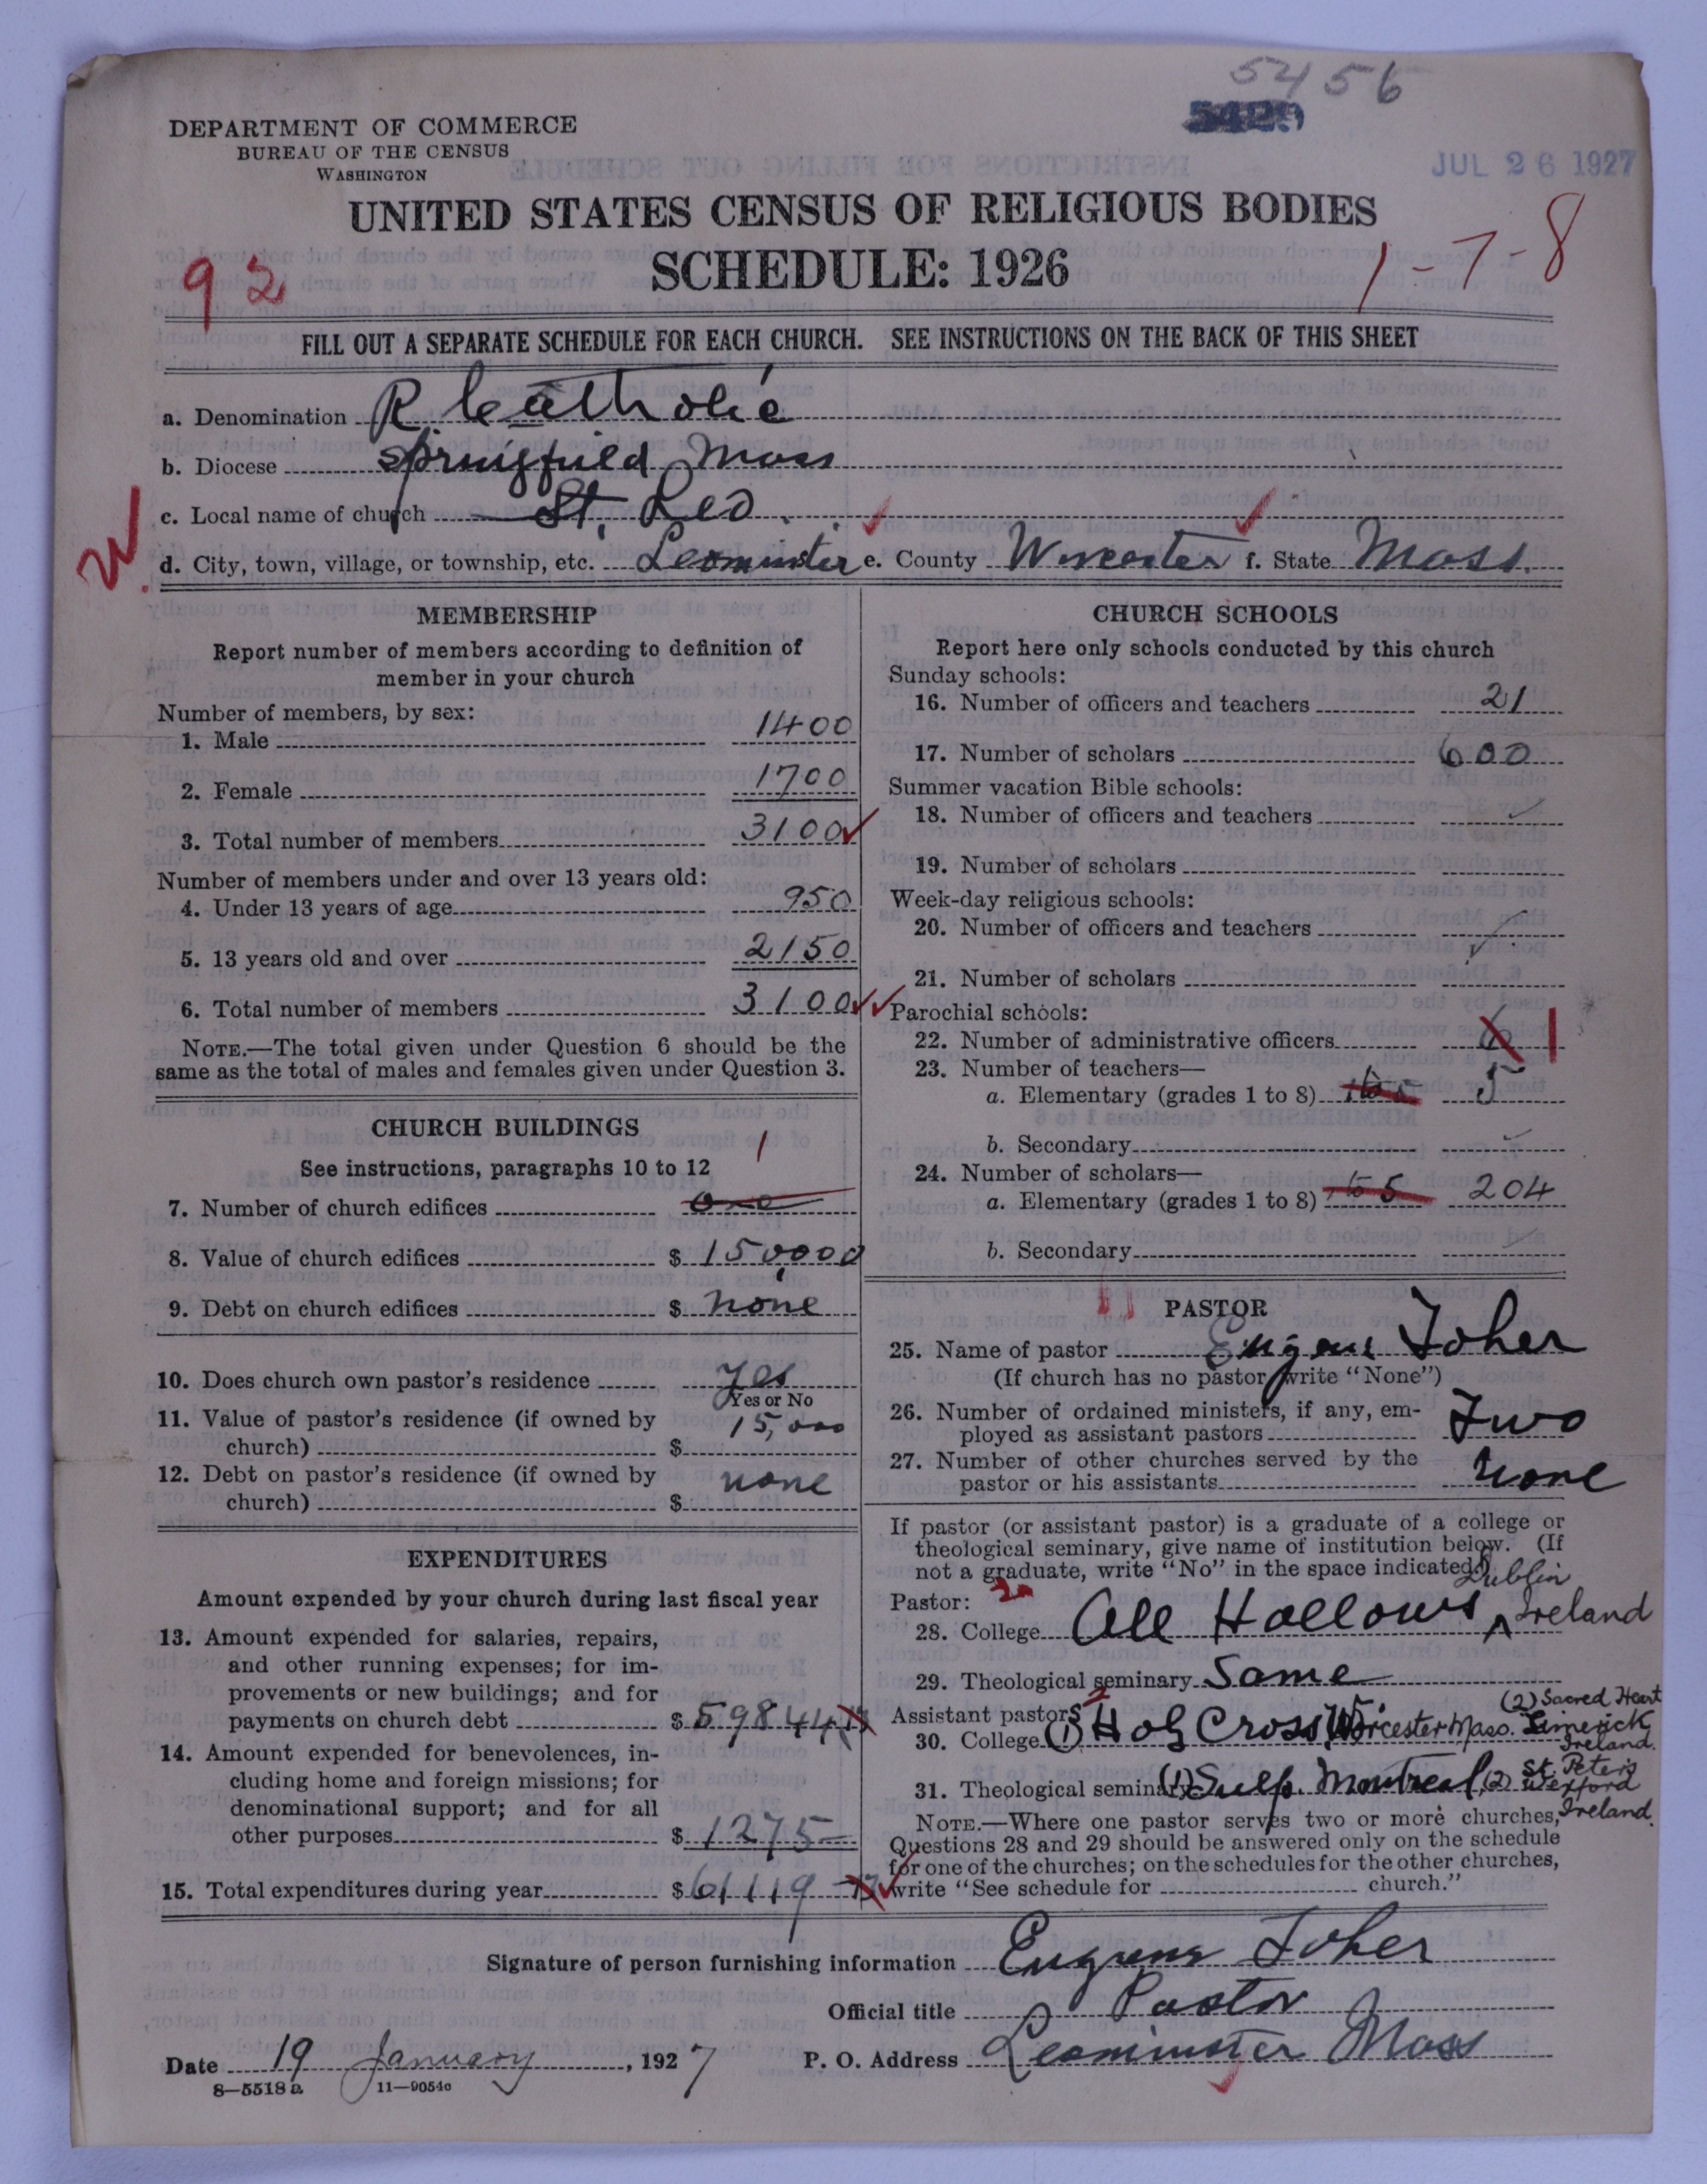 5456
5429
DEPARTMENT OF COMMERCE
BUREAU OF THE CENSUS
WASHINGTON
JUL 26 1927
UNITED STATES CENSUS OF RELIGIOUS BODIES
SCHEDULE: 1926
92
1-7-8
FILL OUT A SEPARATE SCHEDULE FOR EACH CHURCH. SEE INSTRUCTIONS ON THE BACK OF THIS SHEET
a. Denomination R Catholic
b. Diocese Springfield Mass
c. Local name of church St. Leo
d. City, town, village, or township, etc. Leominster e. County Worcester f. State Mass.
MEMBERSHIP
Report number of members according to definition of
member in your church
Number of members, by sex:
1. Male 1400
2. Female 1700
3. Total number of members 3100
Number of members under and over 13 years old:
4. Under 13 years of age 950
5. 13 years old and over 2150
6. Total number of members 3100
NOTE.—The total given under Question 6 should be the
same as the total of males and females given under Question 3.
CHURCH BUILDINGS
See instructions, paragraphs 10 to 12
1
7. Number of church edifices one
8. Value of church edifices $ 150,000
9. Debt on church edifices $ none
10. Does church own pastor's residence yes
Yes or No
11. Value of pastor's residence (if owned by
church) $ 15,000
12. Debt on pastor's residence (if owned by
church) $ none
EXPENDITURES
Amount expended by your church during last fiscal year
13. Amount expended for salaries, repairs,
and other running expenses; for im-
provements or new buildings; and for
payments on church debt $ 59844
14. Amount expended for benevolences, in-
cluding home and foreign missions; for
denominational support; and for all
other purposes $ 1275—
15. Total expenditures during year $ 61119
CHURCH SCHOOLS
Report here only schools conducted by this church
Sunday schools:
16. Number of officers and teachers 21
17. Number of scholars 600
Summer vacation Bible schools:
18. Number of officers and teachers
19. Number of scholars
Week-day religious schools:
20. Number of officers and teachers
21. Number of scholars
Parochial schools:
22. Number of administrative officers 6 1
23. Number of teachers—
a. Elementary (grades 1 to 8) 1 to 5 5
b. Secondary
24. Number of scholars—
a. Elementary (grades 1 to 8) 1 to 5 204
b. Secondary
PASTOR
25. Name of pastor Eugene Toher
(If church has no pastor write "None")
26. Number of ordained ministers, if any, em-
ployed as assistant pastors Two
27. Number of other churches served by the
pastor or his assistants None
If pastor (or assistant pastor) is a graduate of a college or
theological seminary, give name of institution below. (If
not a graduate, write "No" in the space indicated.)
Pastor:
Dublin
28. College All Hallows Ireland
29. Theological seminary Same
Assistant pastors 2
30. College (1) Holy Cross Worcester Mass. (2) Sacred Heart Limerick Ireland.
31. Theological seminary (1) Sulp. Montreal, (2) St. Peter's Wexford Ireland.
NOTE.—Where one pastor serves two or more churches,
Questions 28 and 29 should be answered only on the schedule
for one of the churches; on the schedules for the other churches,
write "See schedule for church."
Signature of person furnishing information Eugene Toher
Official title Pastor
Date 19 January, 1927
P. O. Address Leominster Mass
8—5518 a
11—9054c